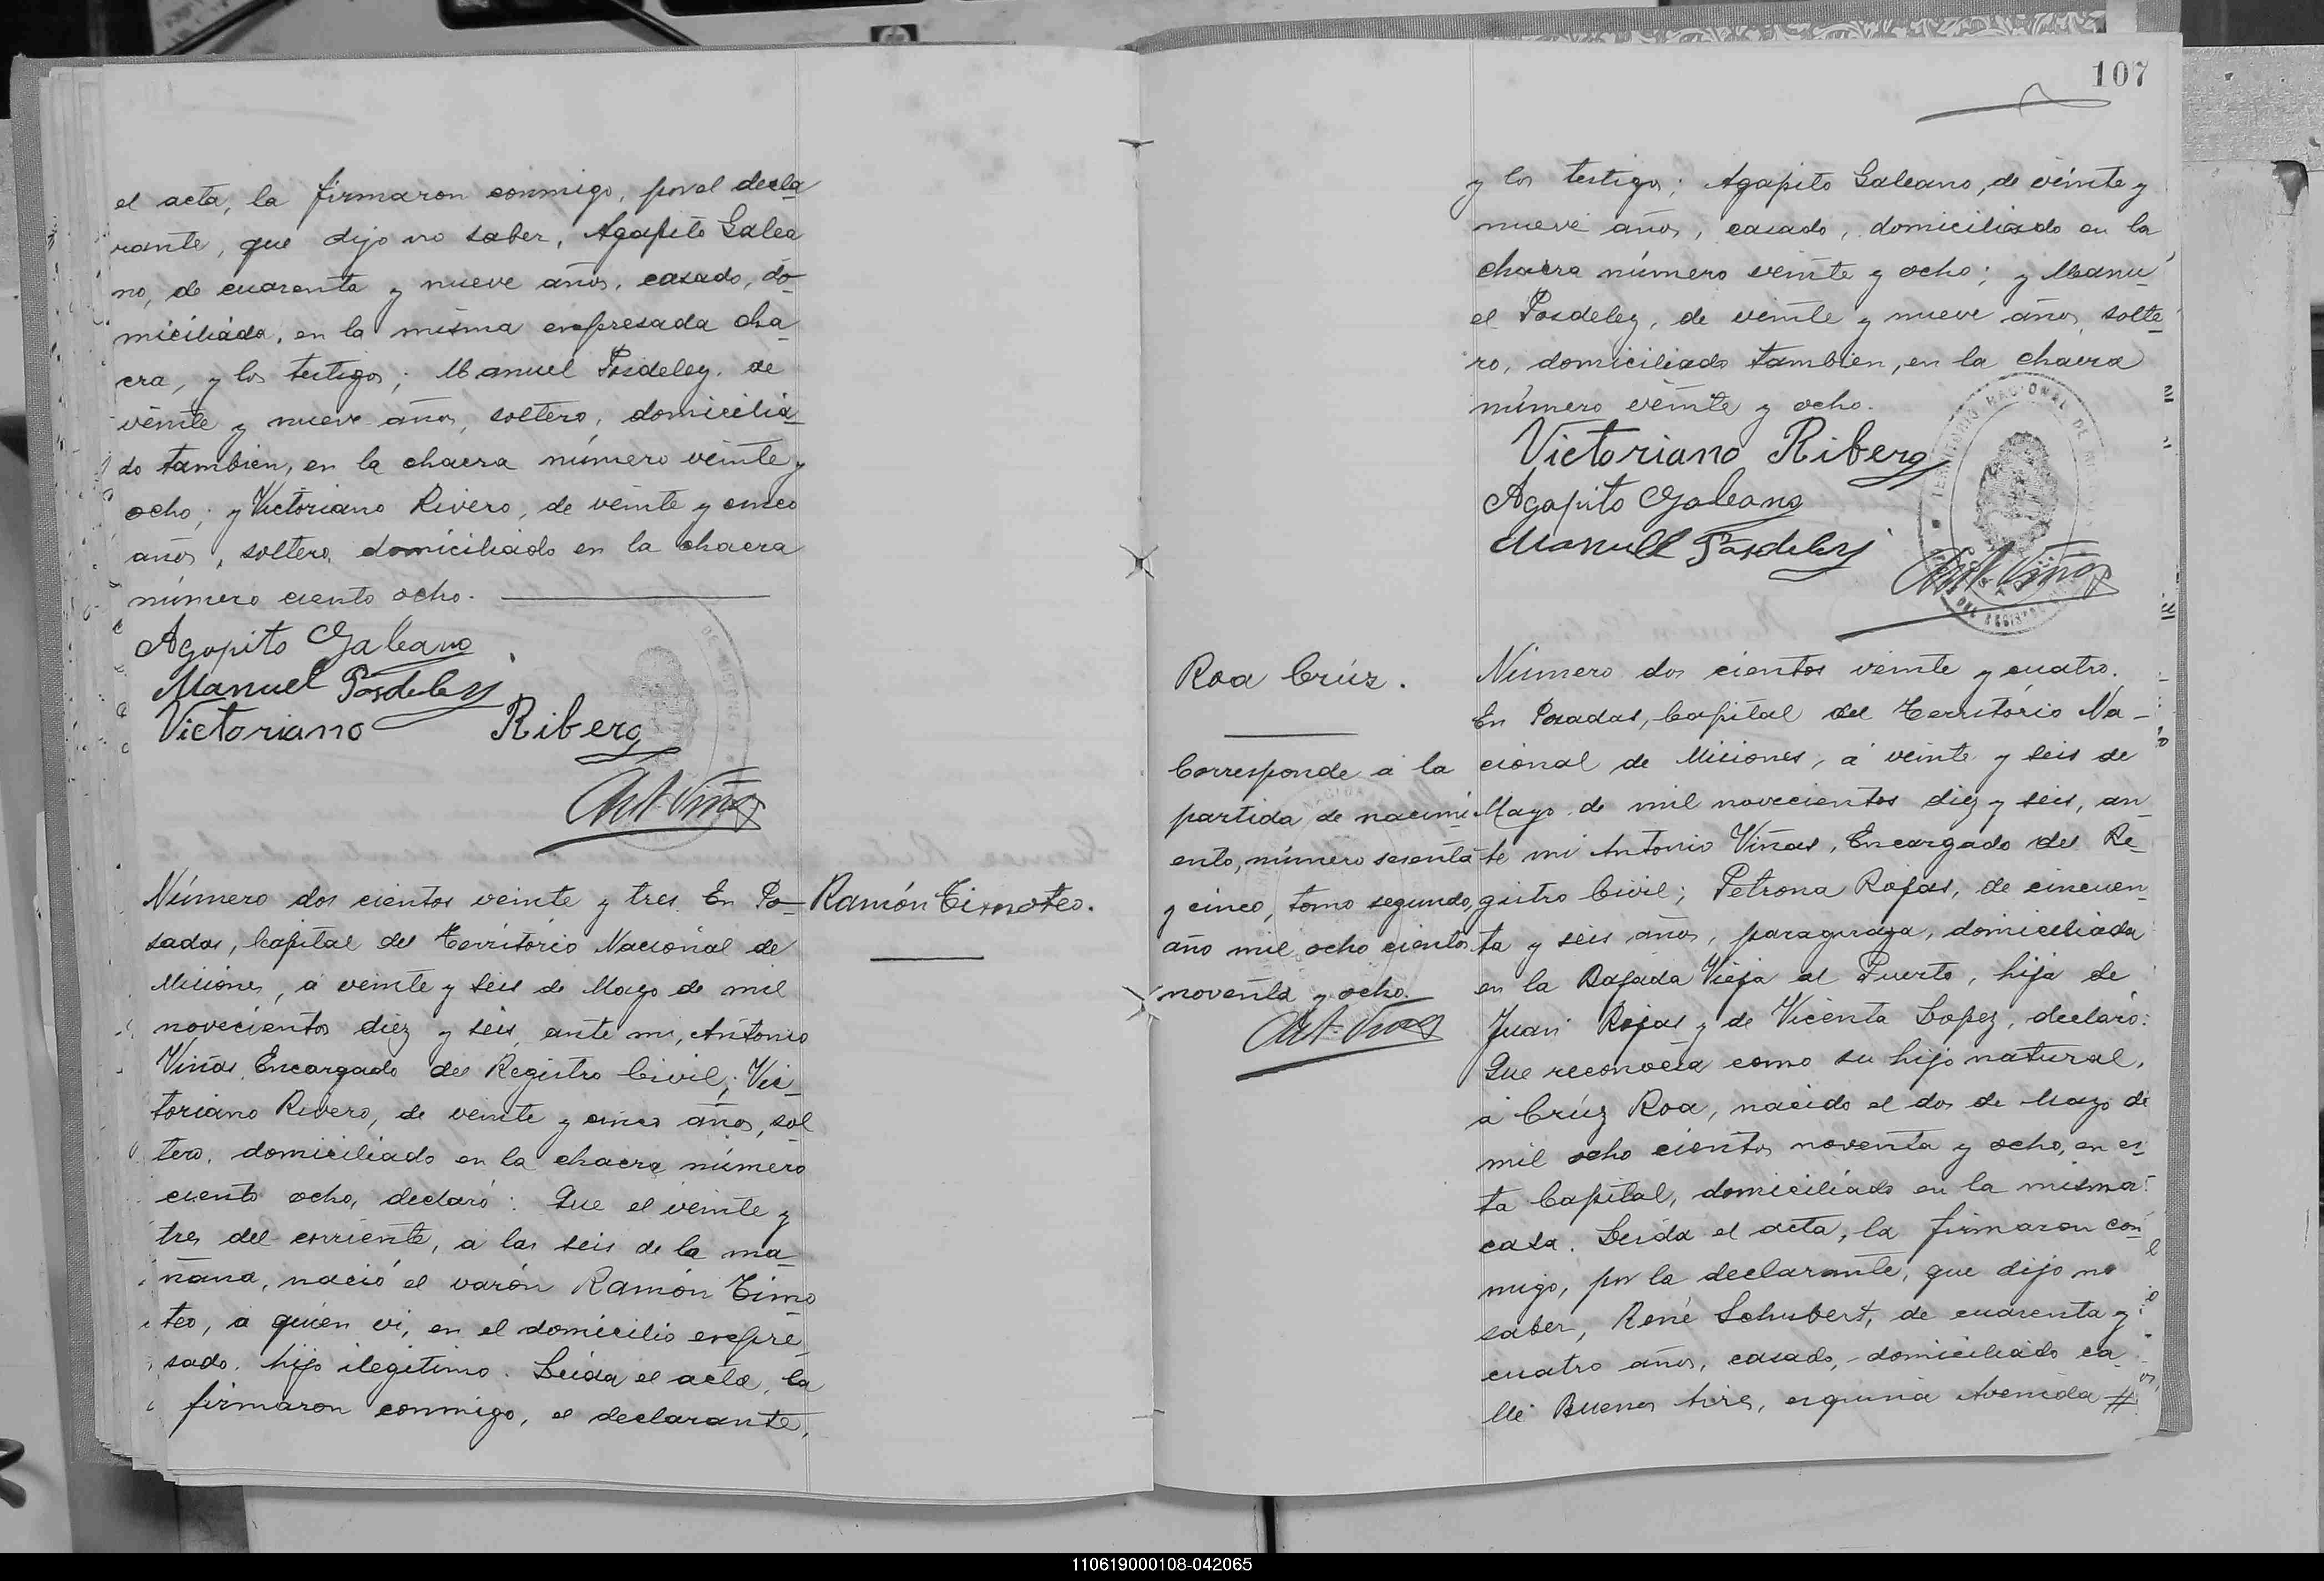 el acta, la firmaron conmigo, por el decla
rante, que dijo no saber, Agapito Galea
no, de cuarenta y nueve años, casado, do-
miciliado, en la misma expresada cha-
cra, y los testigos; Manuel Posdeley, de
veinte y nueve años, soltero, domicilia-
do tambien, en la chacra número veinte y
ocho; y Victoriano Rivero, de veinte y cinco
años, soltero, domiciliado en la chacra
número ciento ocho.
Agapito Galeano
Manuel Posdeley
Victoriano Ribero
Ant. Viñas
Número dos cientos veinte y tres. En Po-
sadas, Capital del Territorio Nacional de
Misiones, á veinte y seis de Mayo de mil
novecientos diez y seis, ante mi, Antonio
Viñas, Encargado del Registro Civil; Vic-
toriano Rivero, de veinte y cinco años, sol
tero, domiciliado en la chacra número
ciento ocho, declaró: Que el veinte y
tres del corriente, a las seis de la ma-
ñana, nació el varón Ramón Timo
teo, a quien vi, en el domicilio expre-
sado, hijo ilegitimo. Leida el acta, la
firmaron conmigo, el declarante,
Ramón Timoteo.
107
y los testigos; Agapito Galeano, de veinte y
nueve años, casado, domiciliado en la
chacra número veinte y ocho; y Manu-
el Posdeley, de veinte y nueve años, solte-
ro, domiciliado tambien, en la chacra
número veinte y ocho.
Victoriano Ribero
Agapito Galeano
Manuel Posdeley
TERRITORIO NACIONAL DE
DEL REGISTRO
Ant. Viñas
Roa Crúz.
Corresponde á la
partida de nacimi-
ento, número sesenta
y cinco, tomo segundo,
año mil ocho cientos
noventa y ocho.
Ant. Viñas
Número dos cientos veinte y cuatro.
En Posadas, Capital del Territorio Na-
cional de Misiones, á veinte y seis de
Mayo de mil novecientos diez y seis, an-
te mi Antonio Viñas, Encargado del Re-
gistro Civil; Petrona Rojas, de cincuen-
ta y seis años, paraguaya, domiciliada
en la Bajada Vieja al Puerto, hija de
Juan Rojas y de Vicenta Lopez, declaró:
Que reconocia como su hijo natural,
á Crúz Roa, nacido el dos de Mayo de
mil ocho cientos noventa y ocho, en es-
ta Capital, domiciliado en la misma
casa. Leida el acta, la firmaron con-
migo, por la declarante, que dijo no
saber, René Schubert, de cuarenta y
cuatro años, casado, domiciliado ca-
lle Buenos Aires, esquina Avenida #
110619000108-042065